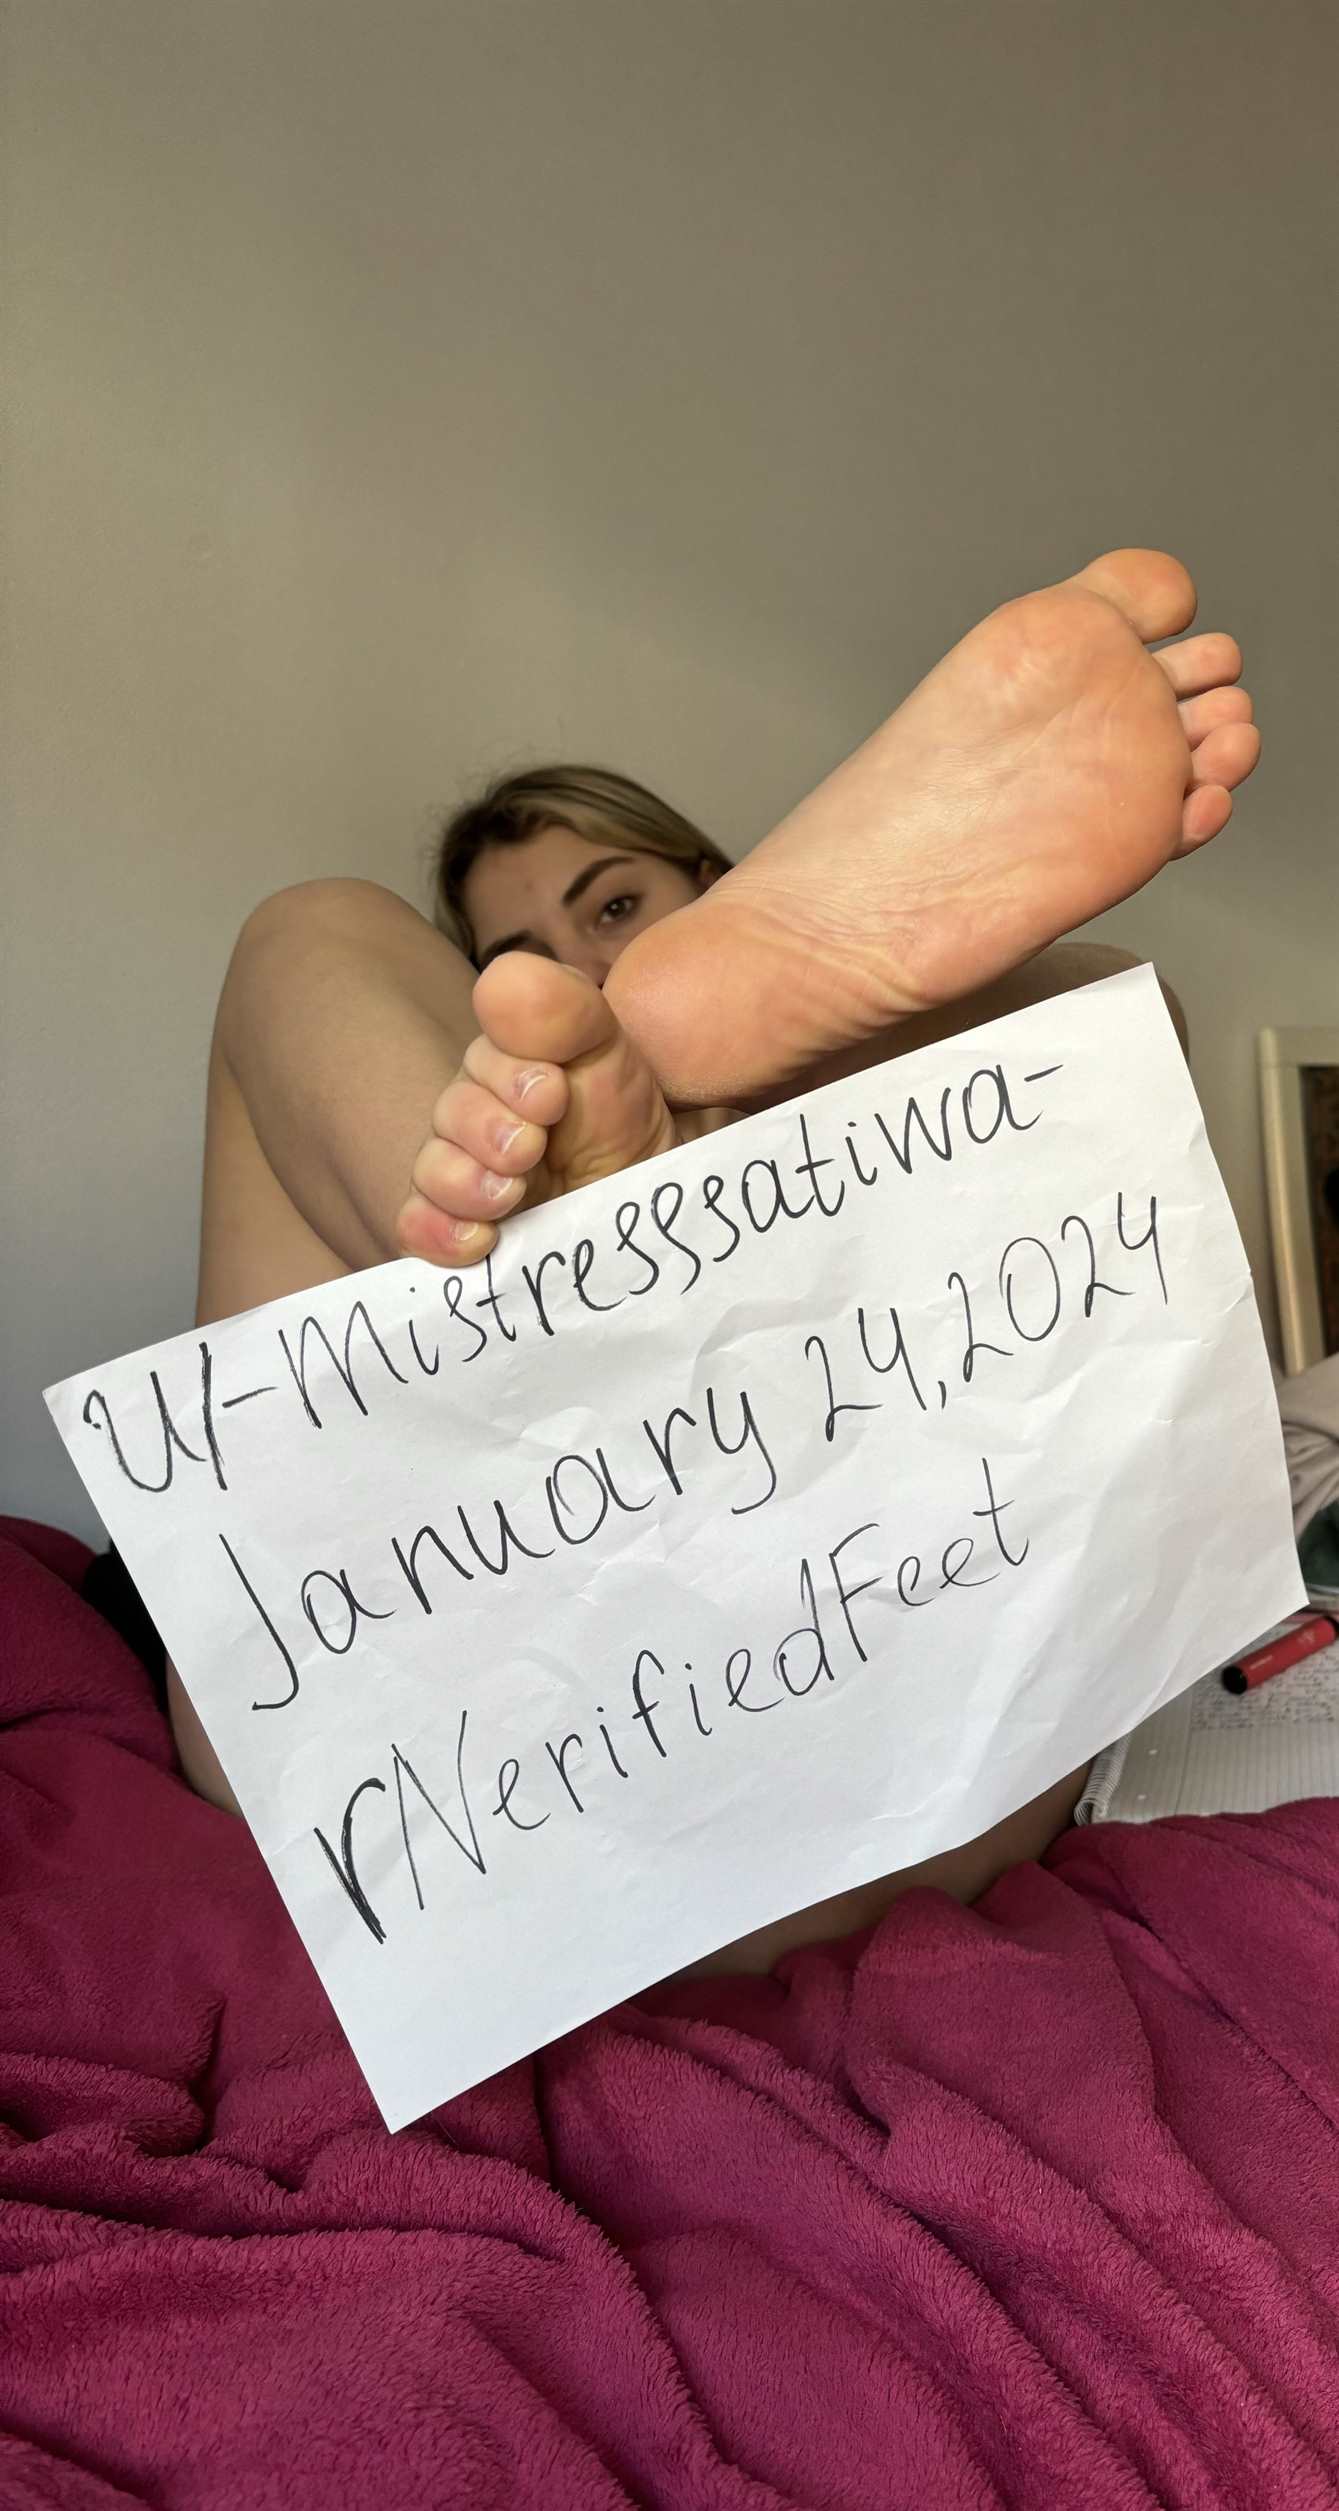 U/-Mistresssatiwa-
January 24,2024
r/VerifiedFeet